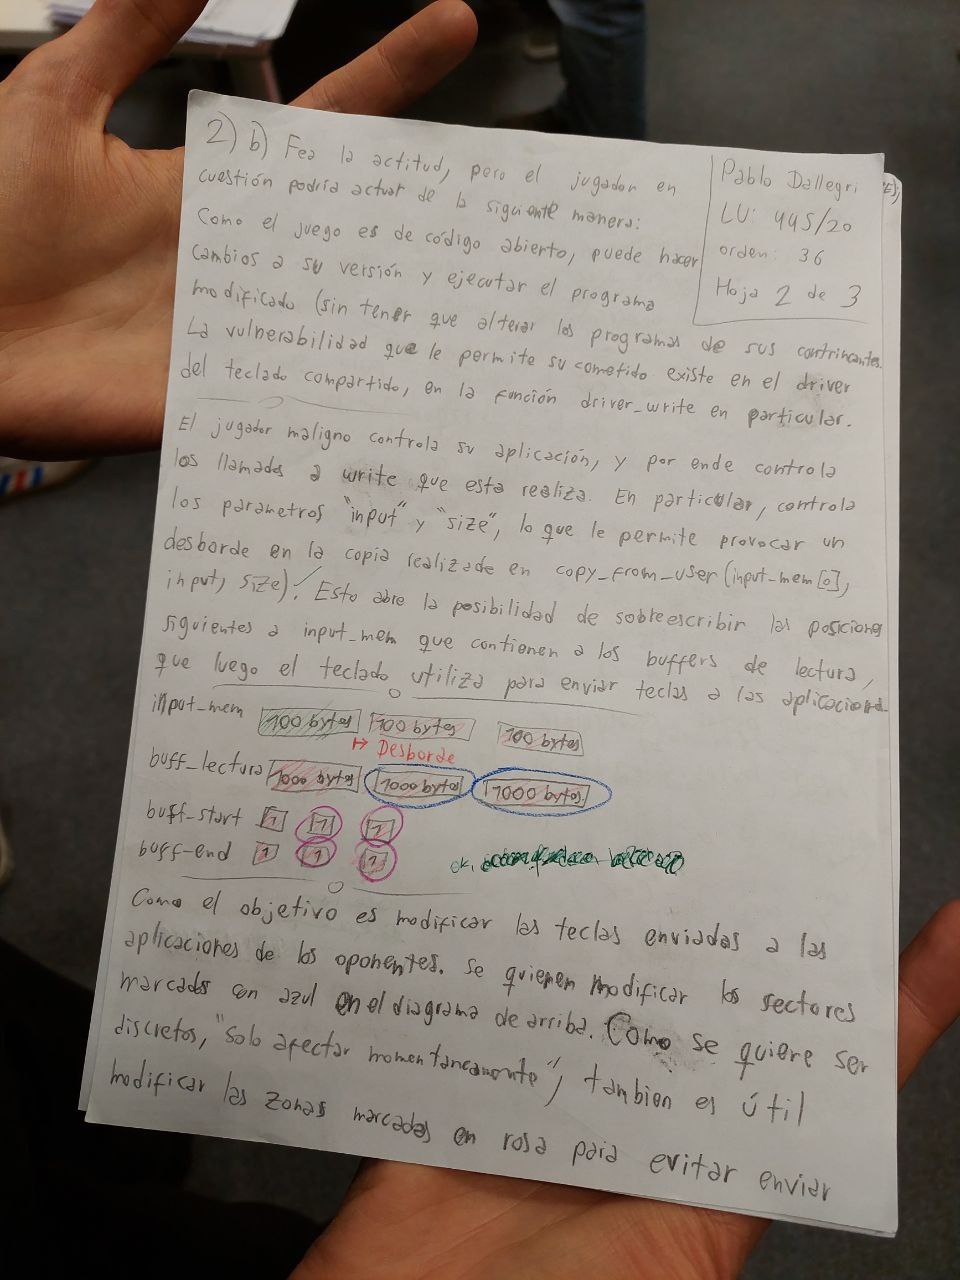 2) b) Fea la actitud, pero el jugador en
cuestión podría actuar de la siguiente manera:
Como el juego es de código abierto, puede hacer
cambios a su versión y ejecutar el programa
modificado (sin tener que alterar los programas de sus contrincantes.
La vulnerabilidad que le permite su cometido existe en el driver
del teclado compartido, en la función driver_write en particular.
Pablo Dallegri
LU: 445/20
orden: 36
Hoja 2 de 3
El jugador maligno controla su aplicación, y por ende controla
los llamados a write que esta realiza. En particular, controla
los parametros "input" y "size", lo que le permite provocar un
desborde en la copia realizada en copy_from_user(input_mem[0],
input, size). Esto abre la posibilidad de sobreescribir las posiciones
siguientes a input_mem que contienen a los buffers de lectura,
que luego el teclado utiliza para enviar teclas a las aplicaciones.
input_mem 100 bytes 100 bytes 100 bytes
↦ Desborde
buff_lectura 1000 bytes 1000 bytes 1000 bytes
buff-start 1 1 1
buff-end 1 1 1
ok,
Como el objetivo es modificar las teclas enviadas a las
aplicaciones de los oponentes. Se quieren modificar los sectores
marcados con azul en el diagrama de arriba. Como se quiere ser
discretos, "solo afectar momentaneamente", tambien es útil
modificar las zonas marcadas en rosa para evitar enviar